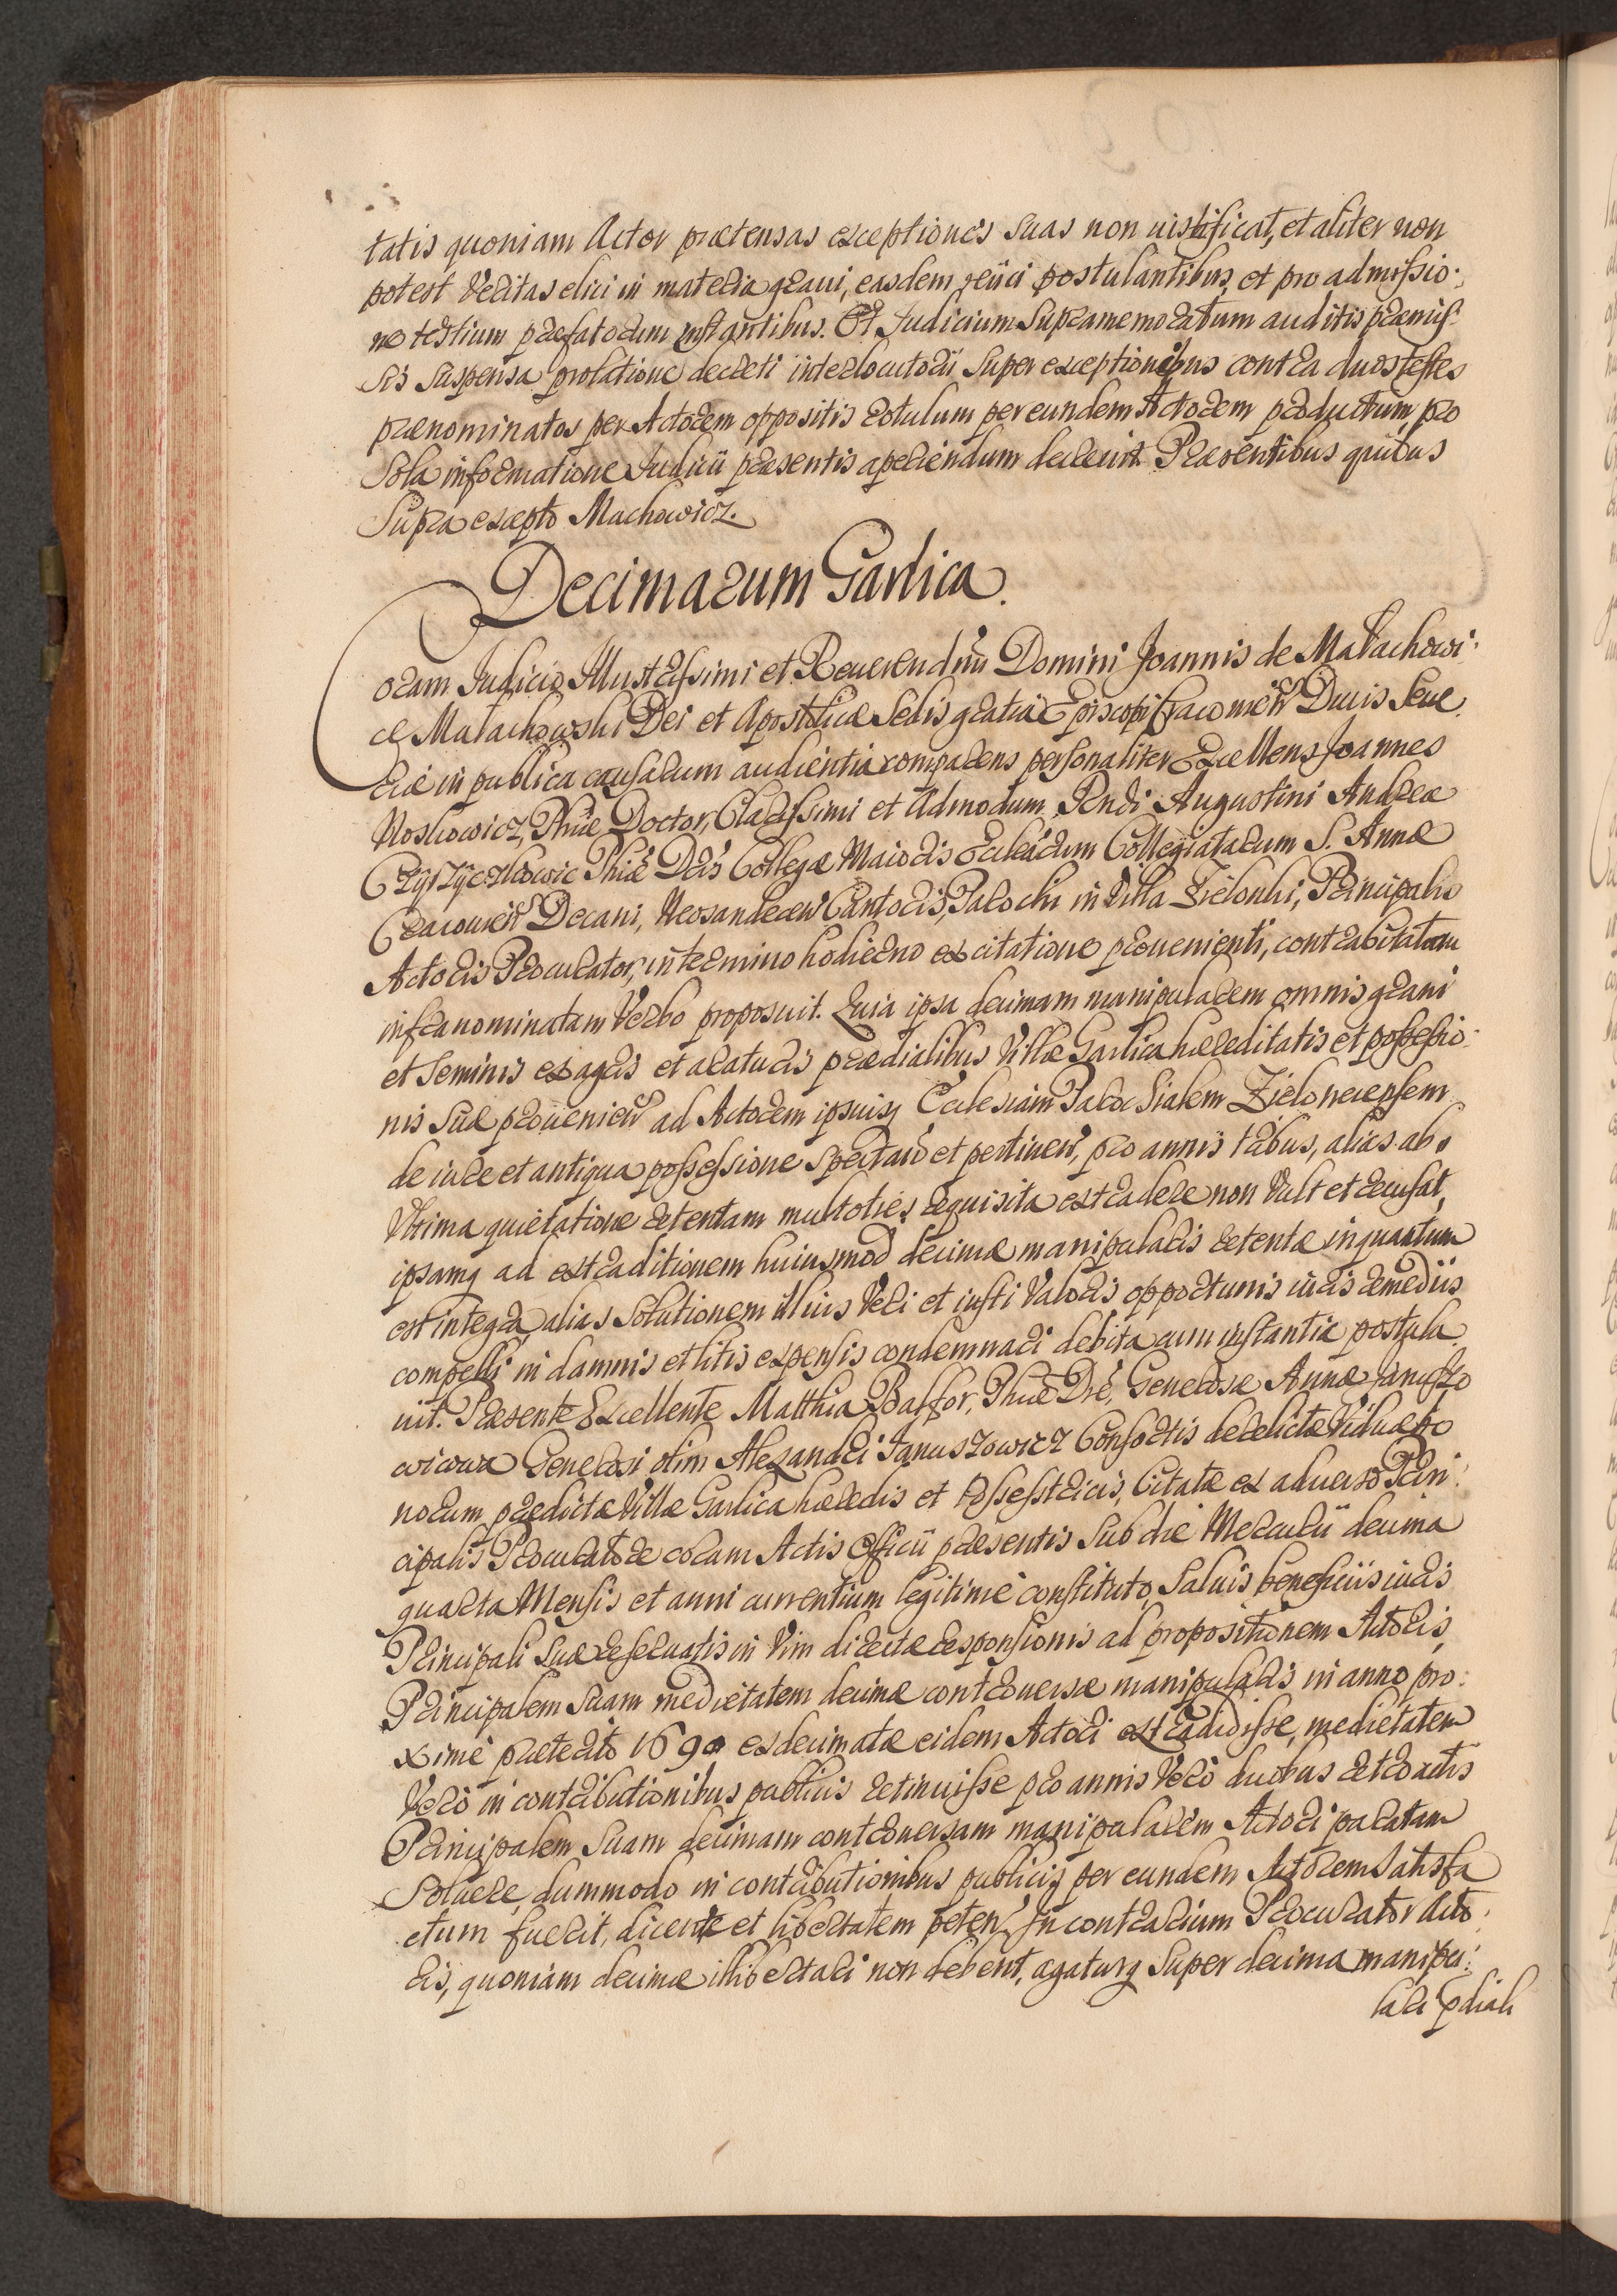 tatis quoniam Actor prætensas exceptiones suas non iustificat, et aliter non
potest veritas elici in materia graui, easdem reiici postulantibus, et pro admissio:
ne testium præfatorum instantibus. Et Judicium supramemoratum auditis præmis:
sis suspensa prolatione decreti interlocutorii super exceptionibus contra duos testes
prænominatos per Actorem oppositis rotulum per eundem Actorem productum, pro
sola informatione Judicii præsentis aperiendum decreuit. Præsentibus quibus
supra excepto Machowicz.
Decimarum Garlica.
Coram Judicio Illustrissimi et Reuerendmi Domini Joannis de Malachowi:
ce Malachowski Dei et Apostolicæ Sedis gratia Episcopi Cracouien Ducis Seue
riæ in publica causarum audientia comparens personaliter Excellens Joannes
Noskowicz, Phiæ Doctor, Clarissimi et Admodum Rendi Augustini Andreæ
Phiæ Dris Collegæ Maioris Ecclearum Collegiatarum S. Annæ
Cracouien Decani, Neosandecen Cantoris, Parochi in Villa Zielonki, Principalis
Actoris Procurator, in termino hodierno ex citatione prouenienti, contra Citatam
infranominatam Verbo proposuit. Quia ipsa decimam manipularem omnis grani
et seminis ex agris et araturis prædialibus Villæ Garlica hæreditatis et possessio:
nis suæ prouenien ad Actorem ipsiusq Ecclesiam Parochialem Zielonecensem
de iure et antiqua possessione spectan et pertinen, pro annis tribus, alias ab
Vltima quietatione retentam multoties requisita extradere non vult et recusat,
ipsamq ad extraditionem huiusmod decimæ manipularis retentæ inquantum
est integra, alias solutionem illius veri et iusti valoris opportunis iuris remediis
compelli in damnis et litis expensis condemnari debita cum instantia postula
uit. Præsente Excellente Matthia Phiæ Dre, Generosæ Annæ Januszo
wicowa Generosi olim Alexandri Januszowicz Consortis derelictæ Viduæ bo
norum prædictæ Villæ Garlica hæredis et Possestricis, Citatæ ex aduerso Prin:
cipalis Procuratore coram Actis Officii præsentis sub die Mercurii decima
quarta Mensis et anni currentium legitime constituto, saluis beneficiis iuris
Principali suæ reseruatis in vim directæ responsionis ad propositionem Actoris,
Principalem suam medietatem decimæ controuersæ manipularis in anno pro:
xime præterito 1690 exdecimatæ eidem Actori extradidisse, medietatem
vero in contributionibus publicis retinuisse pro annis vero duobus retroactis
Principalem suam decimam controuersam manipularem Actori paratam
soluere, dummodo in contributionibus publicis per eundem Actorem satisfa
ctum fuerit, dicente et libertatem peten. In contrarium Procurator Acto:
ris, quoniam decimæ illibertari non debent, agaturq super decima manipu:
lari prdiali